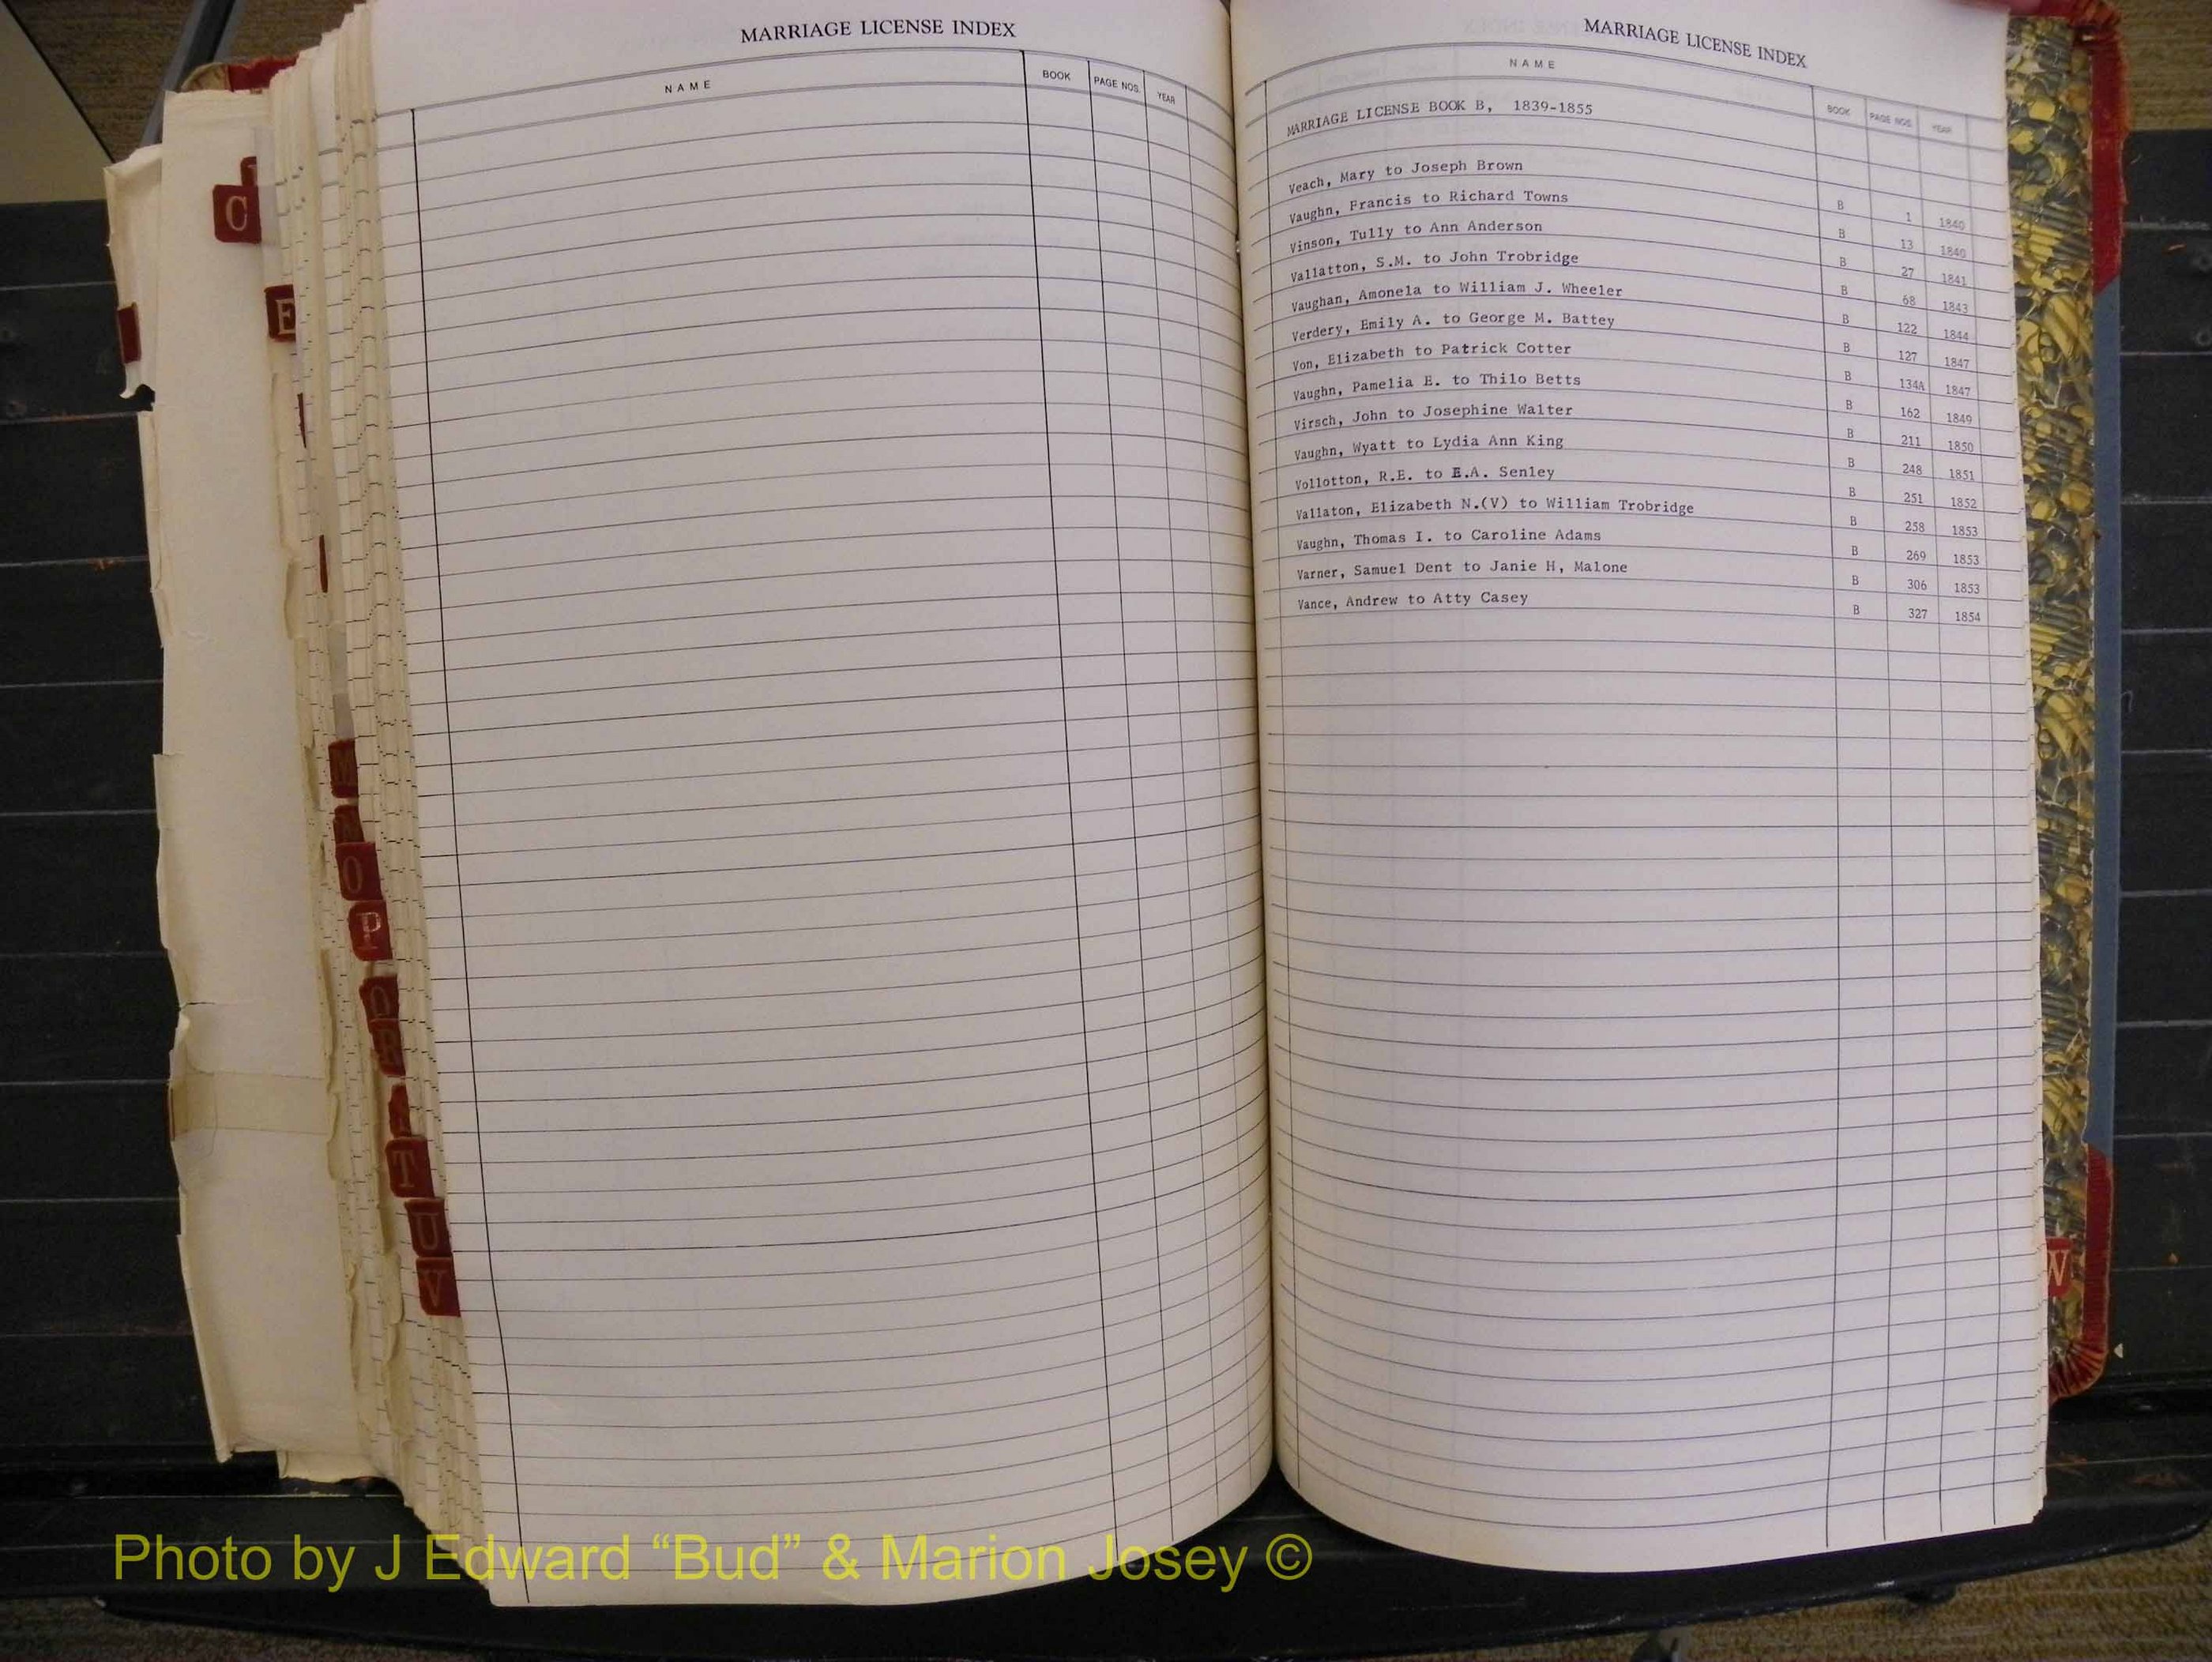 MARRIAGE LICENSE INDEX
NAME BOOK PAGE NOS. YEAR
MARRIAGE LICENSE INDEX
NAME BOOK PAGE NOS. YEAR
MARRIAGE LICENSE BOOK B, 1839-1855
Veach, Mary to Joseph Brown B 1 1840
Vaughn, Francis to Richard Towns B 13 1840
Vinson, Tully to Ann Anderson B 27 1841
Vallatton, S.M. to John Trobridge B 68 1843
Vaughan, Amonela to William J. Wheeler B 122 1844
Verdery, Emily A. to George M. Battey B 127 1847
Von, Elizabeth to Patrick Cotter B 134A 1847
Vaughn, Pamelia E. to Thilo Betts B 162 1849
Virsch, John to Josephine Walter B 211 1850
Vaughn, Wyatt to Lydia Ann King B 248 1851
Vollotton, R.E. to E.A. Senley B 251 1852
Vallaton, Elizabeth N.(V) to William Trobridge B 258 1853
Vaughn, Thomas I. to Caroline Adams B 269 1853
Varner, Samuel Dent to Janie H, Malone B 306 1853
Vance, Andrew to Atty Casey B 327 1854
C
E
M
N
O
P
Q
R
T
U
V
W
Photo by J Edward “Bud” & Marion Josey ©